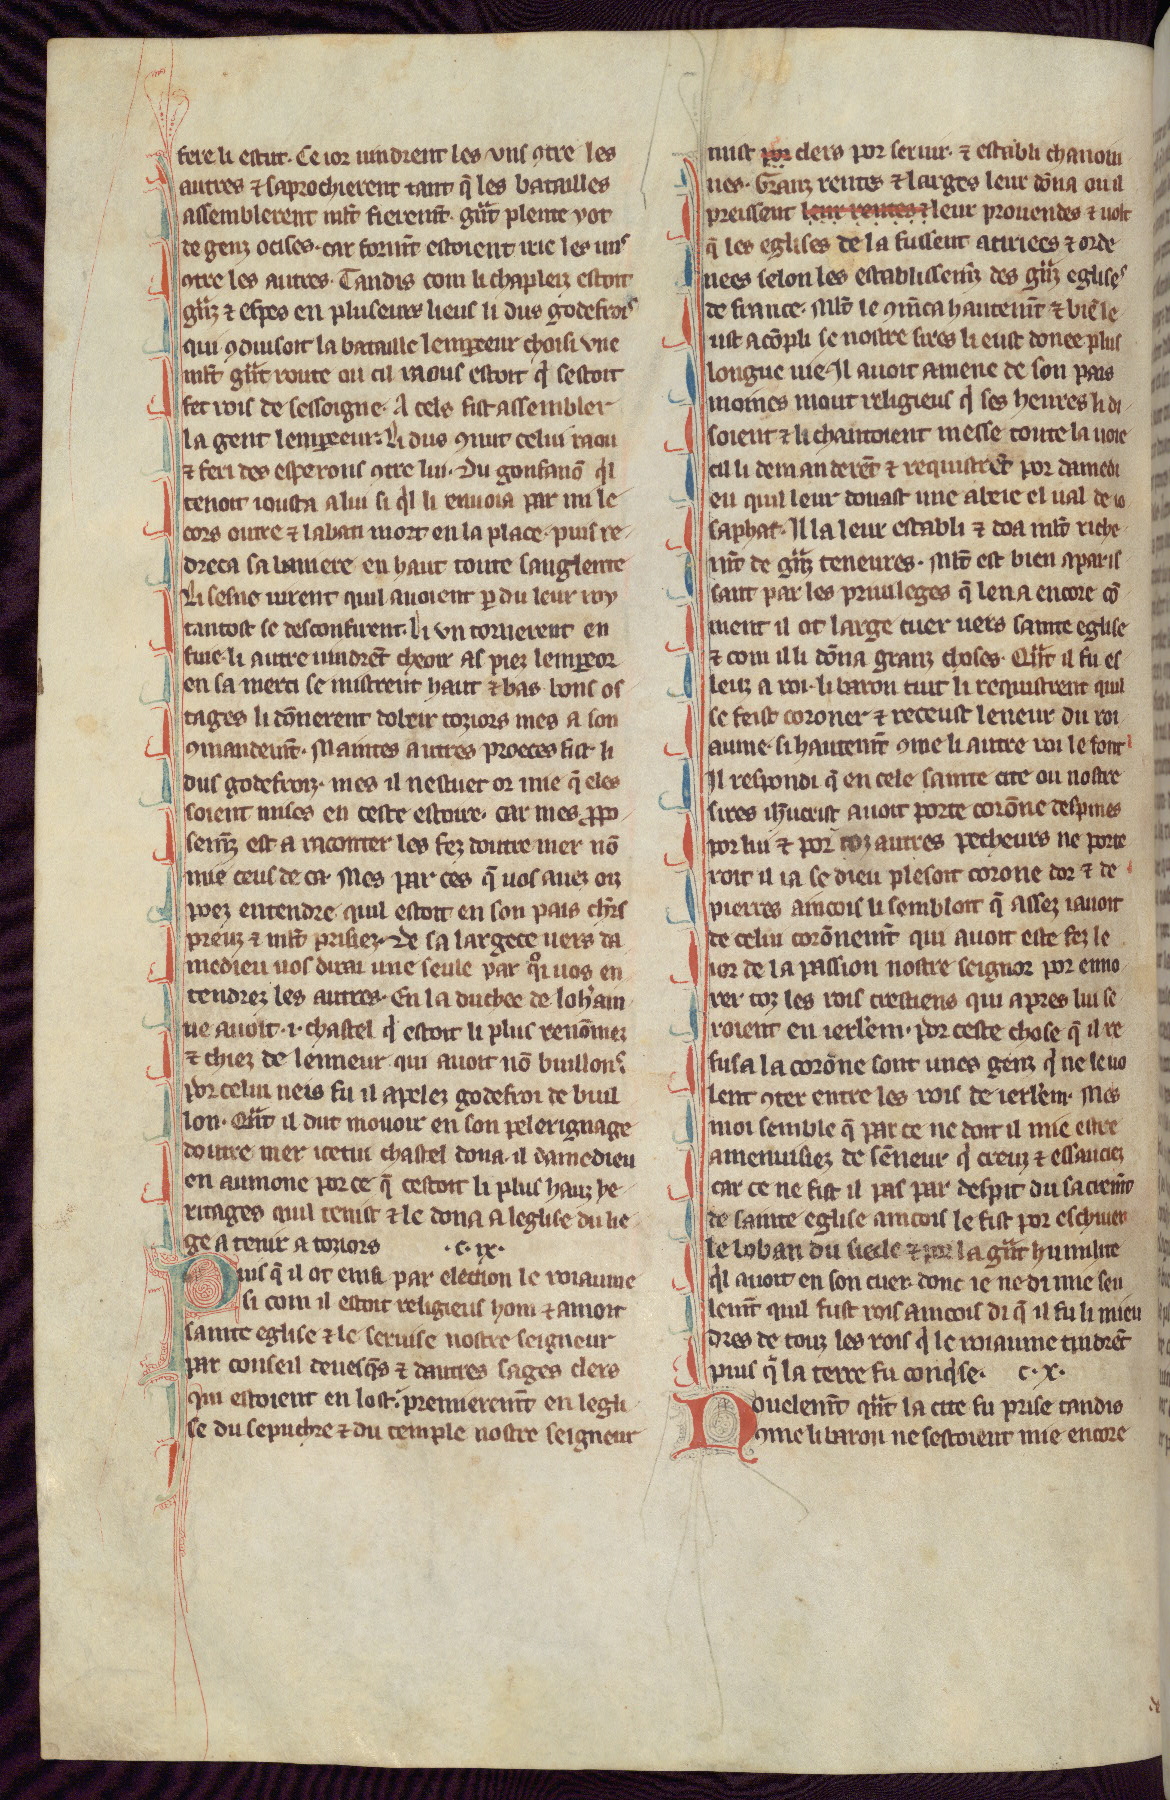 fere li estut. Ce ior uindrent les vns ꝯtre les
autres ⁊ saprochierent tant q̃ les batailles
assemblerent ml̃t fierem̃t. gñt plente yot
de genz ocises. car form̃t estoient irie les uns
ꝯtre les autres. Tandis com li chapleiz estoit
gñz ⁊ espes en pluseurs lieus li dus godefrois
qui ꝯduisoit la bataille lemꝑeeur choisi vne
ml̃t gñt route ou cil raous estoit q̃ sestoit
fet rois de sessoigne. A cels fist assembler
la gent lemꝑeeur. Li dus ꝯnut celui raou
⁊ feri des esperons ꝯtre lui. Du gonfanõ q̃l
tenoit iousta a lui si q̃l li enuoia par mi le
cors outre ⁊ labati mort en la place. puis re
dreca sa baniere en haut toute sanglente
Li sesne uirent quil auoient ꝑdu leur roy
tantost se desconfirent. Li vn tornerent en
fuie. li autre uindrẽt cheoir as piez lemꝑeor
en sa merci se mistrent haut ⁊ bas. bons os
tages li dõnerent dobeir toziors mes a son
ꝯmandem̃t. Maintes autres proeces fist li
dus godefroiz. mes il nestuet or mie q̃ eles
soient mises en ceste estoire. car mes ꝓpo
sem̃z est a raconter les fez doutre mer nõ
mie ceus de ca. Mes par ces q̃ uos auez oiz
poez entendre quil estoit en son pais chr̃s
preuz ⁊ ml̃t prisiez. De sa largece uers da
medieu uos dirai une seule par quoi uos en
tendrez les autres. En la duchee de loh̃ain
ne auoit .i. chastel q̃ estoit li plus renõmez
⁊ chiez de lenneur qui auoit nõ buillons.
por celui neis fu il apelez godefroi de buil
lon. Qñt il dut mouoir en son pelerignage
doutre mer icelui chastel dona il damedieu
en aumone por ce q̃ cestoit li plus hauz he
ritages quil tenist ⁊ le dona a leglise du lie
ge a tenir a toziors .c.ix.
Puis q̃ il ot einsi par election le roiaume
si com il estoit religieus hom ⁊ amoit
sainte eglise ⁊ le seruise nostre seigneur
par conseil deuesq̃s ⁊ dautres sages clers
qui estoient en lost. premierem̃t en legli
se du sepuchre ⁊ du temple nostre seigneur
mist por clers por seruir. ⁊ establi chanoin
nes. Granz rentes ⁊ larges leur dõna ou il
preissent leur rentes ⁊ leur prouendes ⁊ uolt
q̃ les eglises de la fussent atiriees ⁊ orde
nees selon les establissem̃z des gñz eglises
de france. Ml̃t le ꝯm̃ca hautem̃t ⁊ biẽ le
ust acõpli se nostre sires li eust donee plus
longue uie. Il auoit amene de son pais
moines mout religieus q̃ ses heures li di
soient ⁊ li chantoient messe toute la uoie
cil li demanderẽt ⁊ requistrẽt por damedi
eu quil leur donast une abeie el ual de io
saphat. Il la leur establi ⁊ doa ml̃t riche
m̃t de gñz teneures. Ml̃t est bien aparis
sant par les priuileges q̃ len a encore cõ
ment il ot large cuer uers sainte eglise
⁊ com il li dõna granz choses. Qñt il fu es
leuz a roi. li baron tuit li requistrent quil
se feist coroner ⁊ receust leneur du roi
aume. si hautem̃t ꝯme li autre roi le font
Il respondi q̃ en cele sainte cite ou nostre
sires ih̃ucrist auoit porte corõne despines
por lui ⁊ por toz autres pecheurs ne porte
roit il ia se dieu plesoit corone dor ⁊ de
pierres aincois li sembloit q̃ assez iauoit
de celui corõnem̃t qui auoit este fez le
ior de la passion nostre seignor por enno
rer toz les rois crestiens qui apres lui se
roient en ierl̃em. por ceste chose q̃ il re
fusa la corõne sont unes genz q̃ ne le uo
lent ꝯter entre les rois de ierl̃em. Mes
moi semble q̃ par ce ne doit il mie estre
amenuisiez de sẽneur q̃ creuz ⁊ essauciez
car ce ne fist il pas par despit du sacrem̃t
de sainte eglise aincois le fist por eschiuer
le loban du siecle ⁊ por la gñt humilite
q̃l auoit en son cuer. donc ie ne di mie seu
lem̃t quil fust rois aincois di q̃ il fu li mieu
dres de touz les rois q̃ le roiaume tindrẽt
puis q̃ la terre fu conq̃se. c.x.
Nouelem̃t qñt la cite fu prise tandis
ꝯme li baron ne sestoient mie encore